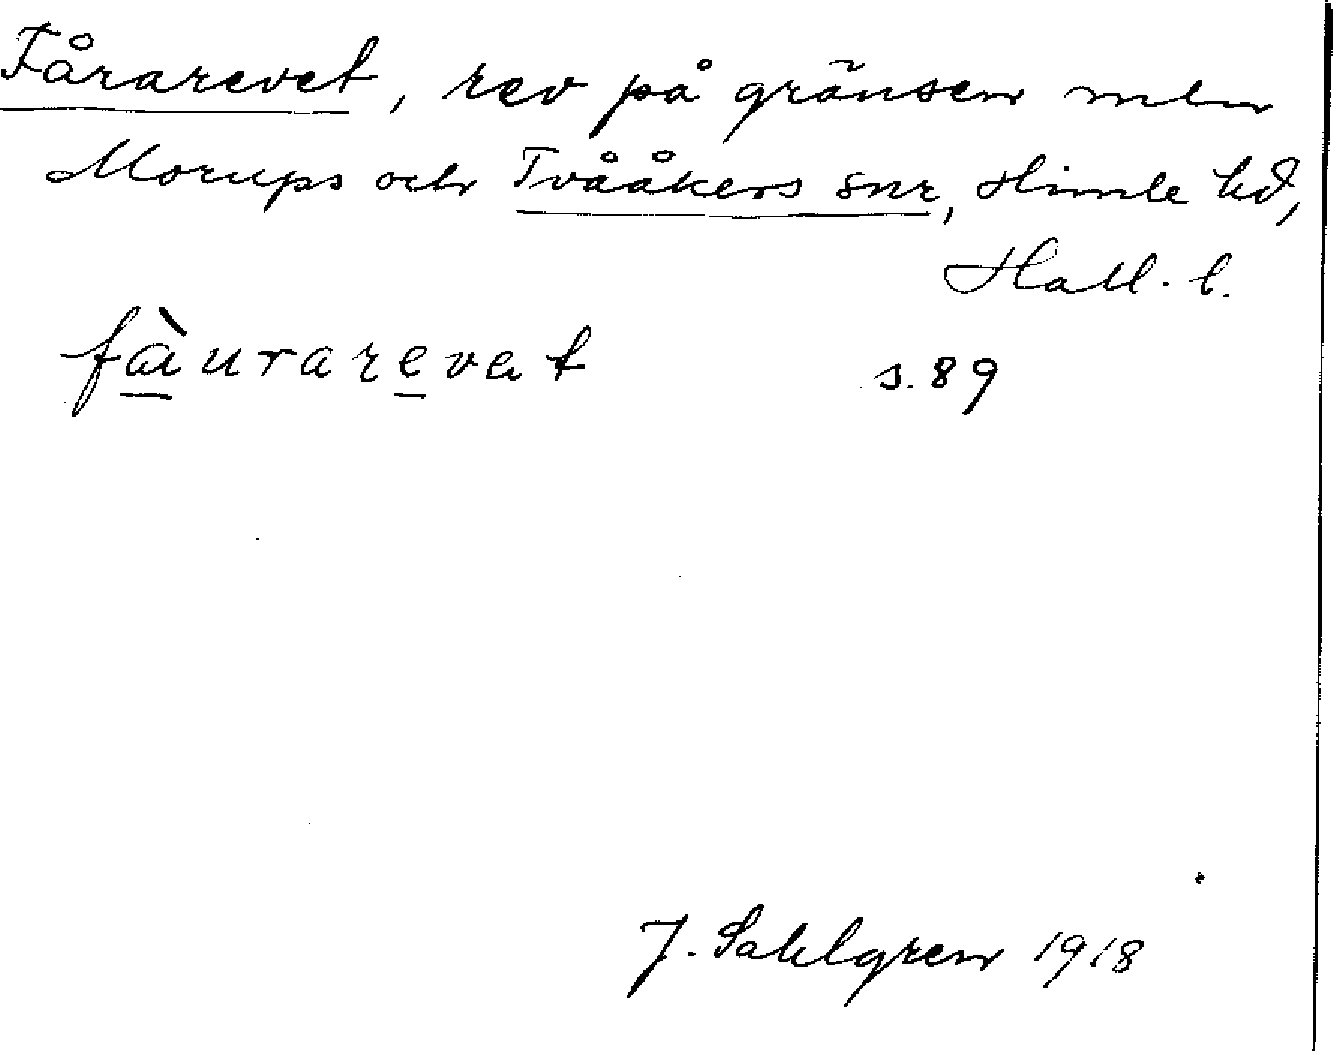 Fårarevet, rev på gränsen mln
Morups och Tvååkers snr, Himle hd,
Hall. l.
fàurarevat s.89
J. Sahlgren 1918